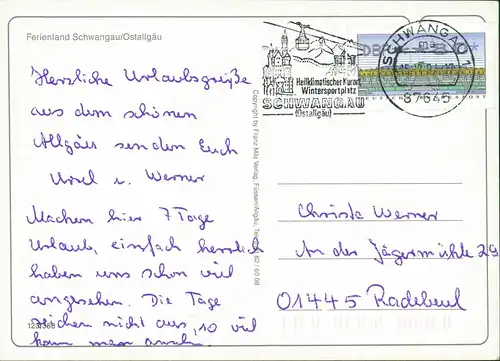 Ferienland Schwangau/Ostallgäu
Herzliche Urlaubsgrüße
aus dem schönen
Allgäu senden Euch
Ursel u. Werner
Machen hier 7 Tage
Urlaub, einfach herrlich
haben uns schon viel
angesehen. Die Tage
reichen nicht aus, so viel
kann man anseh.
123/368
Copyright by Franz Milz Verlag, Füssen/Allgäu, Tel. 62 / 60 08
Heilklimatischer Kurort
Wintersportplatz
SCHWANGAU
(Ostallgäu)
SCHWANGAU 1
ma
87645
DBP
DEUTSCHE BUNDESPOST
Christa Werner
An der Jägermühle 29
01445 Radebeul